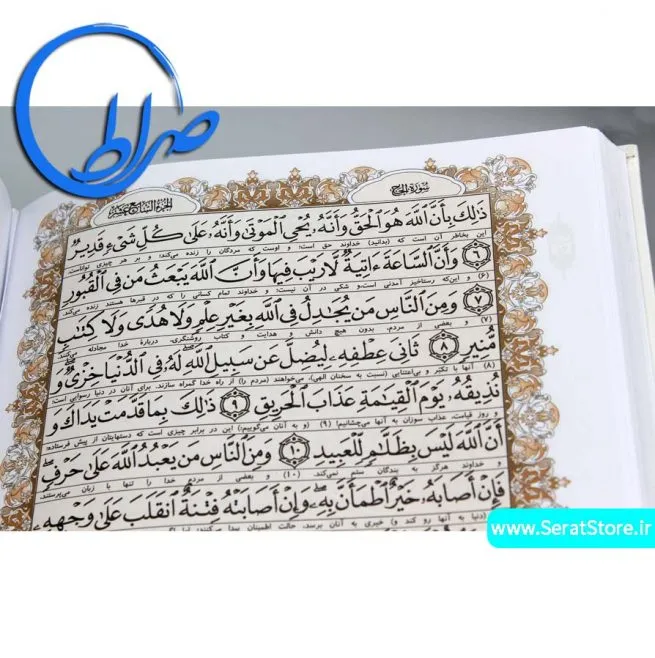 صراط
سورة الحج
الجزء السابع عشر
ذَٰلِكَ بِأَنَّ اللَّهَ هُوَ الْحَقُّ وَأَنَّهُ يُحْيِي الْمَوْتَىٰ وَأَنَّهُ عَلَىٰ كُلِّ شَيْءٍ قَدِيرٌ
این بخاطر آن است که (بدانید) خداوند حق است؛ و اوست که مردگان را زنده می‌کند؛ و بر هر چیزی تواناست.
﴿٦﴾ وَأَنَّ السَّاعَةَ ءَاتِيَةٌ لَّا رَيْبَ فِيهَا وَأَنَّ اللَّهَ يَبْعَثُ مَن فِي الْقُبُورِ
(۶) و اینکه رستاخیز آمدنی است، و شکی در آن نیست؛ و خداوند تمام کسانی را که در قبرها هستند زنده می‌کند.
﴿٧﴾ وَمِنَ النَّاسِ مَن يُجَادِلُ فِي اللَّهِ بِغَيْرِ عِلْمٍ وَلَا هُدًى وَلَا كِتَابٍ
(۷) و بعضی از مردم، بدون هیچ دانش و هدایت و کتاب روشنگری، دربارهٔ خدا مجادله می‌کنند.
مُّنِيرٍ ﴿٨﴾ ثَانِيَ عِطْفِهِ لِيُضِلَّ عَن سَبِيلِ اللَّهِ لَهُ فِي الدُّنْيَا خِزْيٌ وَ
(۸) آنها با تکبّر و بی‌اعتنایی (نسبت به سخنان الهی)، می‌خواهند (مردم را) از راه خدا گمراه سازند. برای آنان در دنیا رسوایی است؛
نُذِيقُهُ يَوْمَ الْقِيَامَةِ عَذَابَ الْحَرِيقِ ﴿٩﴾ ذَٰلِكَ بِمَا قَدَّمَتْ يَدَاكَ وَ
و روز قیامت، عذاب سوزان به آنها می‌چشانیم! (۹) (و به آنان می‌گوییم): این در برابر چیزی است که دستهایتان از پیش فرستاده؛
أَنَّ اللَّهَ لَيْسَ بِظَلَّامٍ لِّلْعَبِيدِ ﴿١٠﴾ وَمِنَ النَّاسِ مَن يَعْبُدُ اللَّهَ عَلَىٰ حَرْفٍ
و خداوند هرگز به بندگان ستم نمی‌کند. (۱۰) و بعضی از مردم خدا را تنها با زبان می‌پرستند.
فَإِنْ أَصَابَهُ خَيْرٌ اطْمَأَنَّ بِهِ وَإِنْ أَصَابَتْهُ فِتْنَةٌ انقَلَبَ عَلَىٰ وَجْهِهِ
(دنیا به آنها رو کند و) خیری به آنان برسد، حالت اطمینان پیدا می‌کنند؛
www.SeratStore.ir